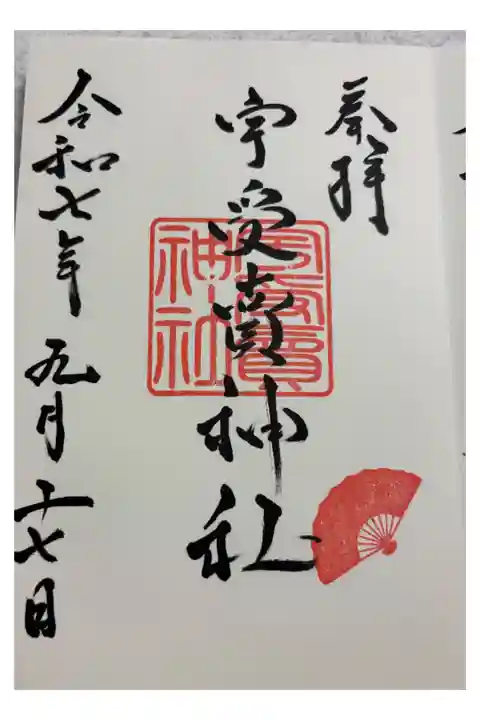 奉拝
宇受賀神社
宇受賀
神社
令和七年 九月二十七日